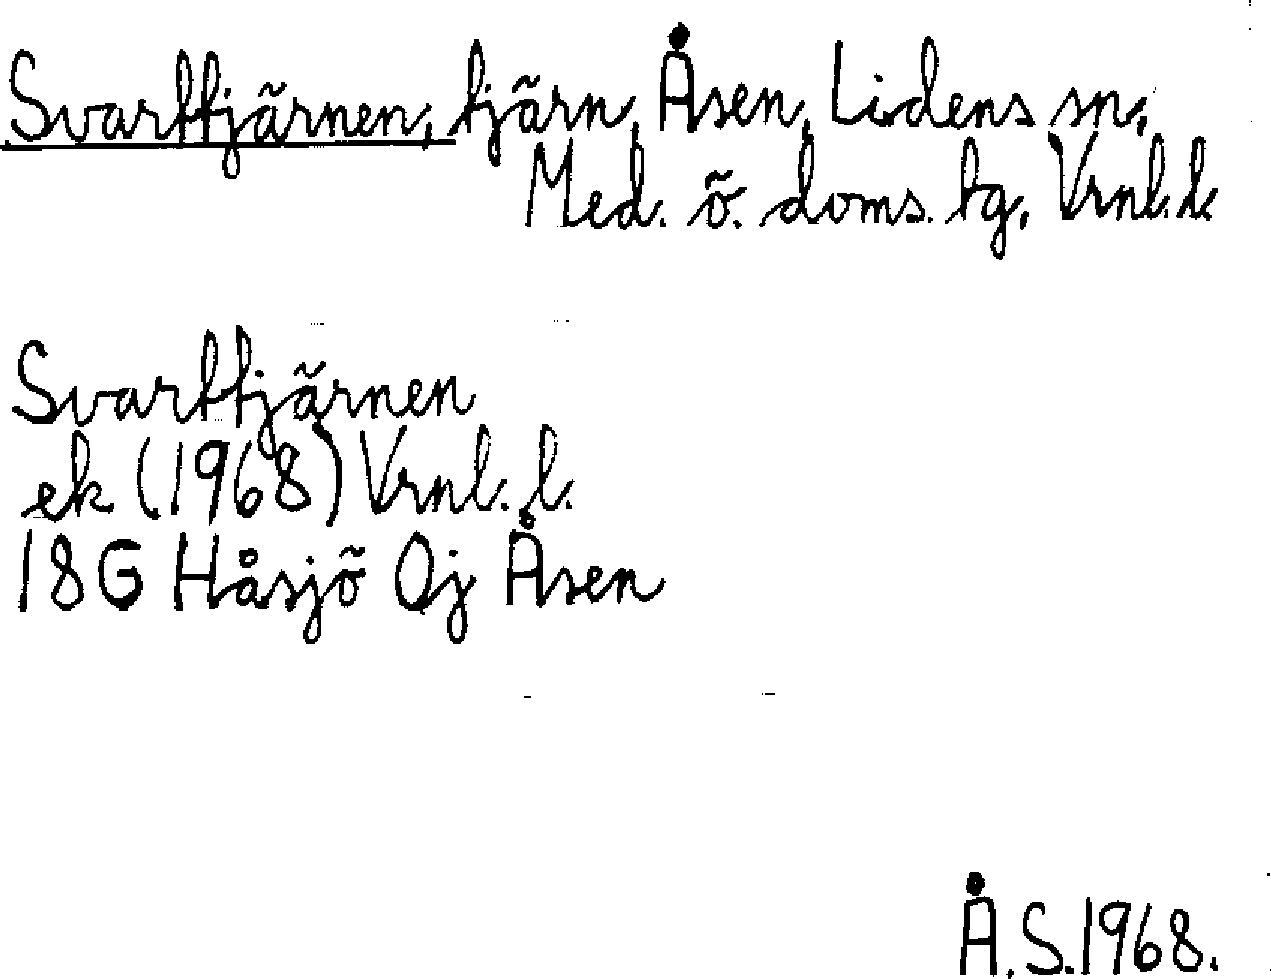 Svarttjärnen, tjärn, Åsen, Lidens sn,
Med. ö. doms. tg, Vrnl. l.
Svarttjärnen
ek (1968) Vrnl. l.
18G Håsjö Oj Åsen
Å.S.1968.